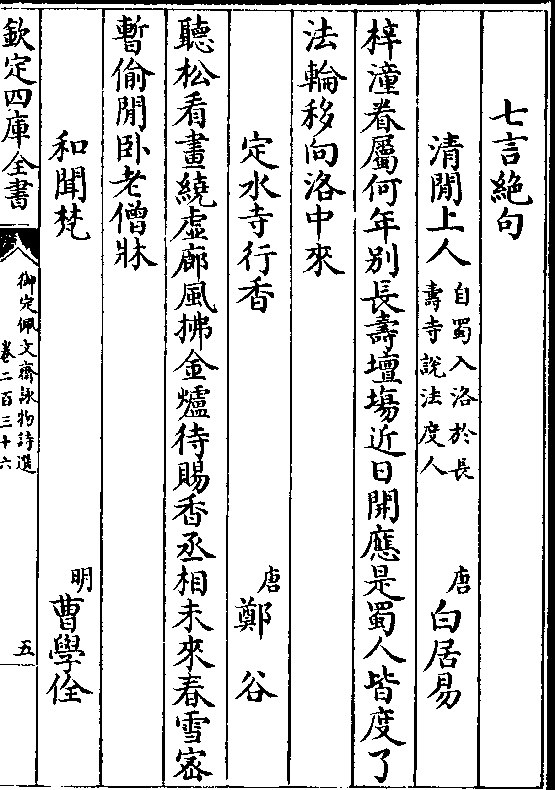 七言絶句
清閒上人自蜀入洛於長壽寺說法度人 唐 白居易
梓潼眷屬何年别長壽壇塲近日開應是蜀人皆度了
法輪移向洛中來
定水寺行香 唐 鄭谷
聽松看畫繞虚廊風拂金爐待賜香丞相未來春雪宻
暫偷閒卧老僧牀
和聞梵 明 曹學佺
欽定四庫全書 御定佩文齋詠物詩選 卷二百三十六 五